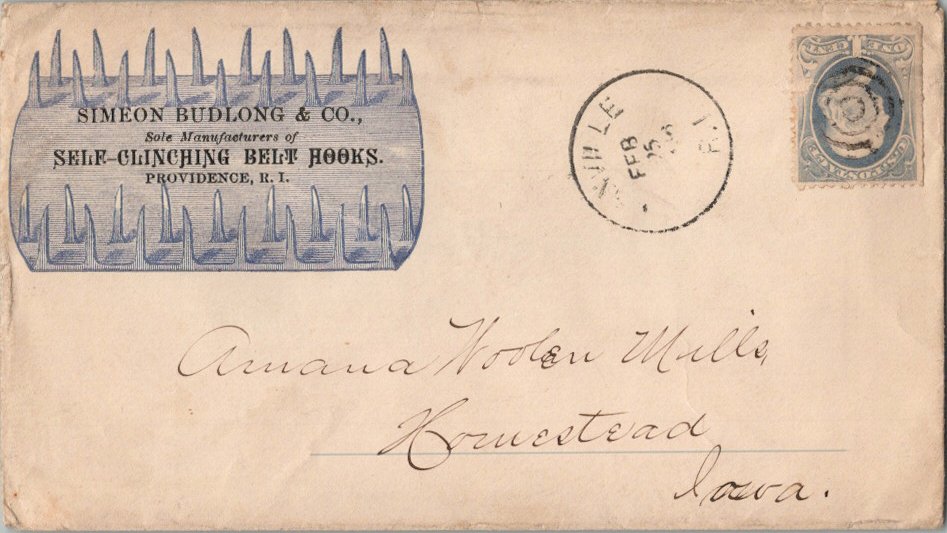 SIMEON BUDLONG & CO.,
Sole Manufacturers of
SELF-CLINCHING BELT HOOKS.
PROVIDENCE, R. I.
FEB
25
R.I.
Amana Woolen Mills,
Homestead
Iowa.